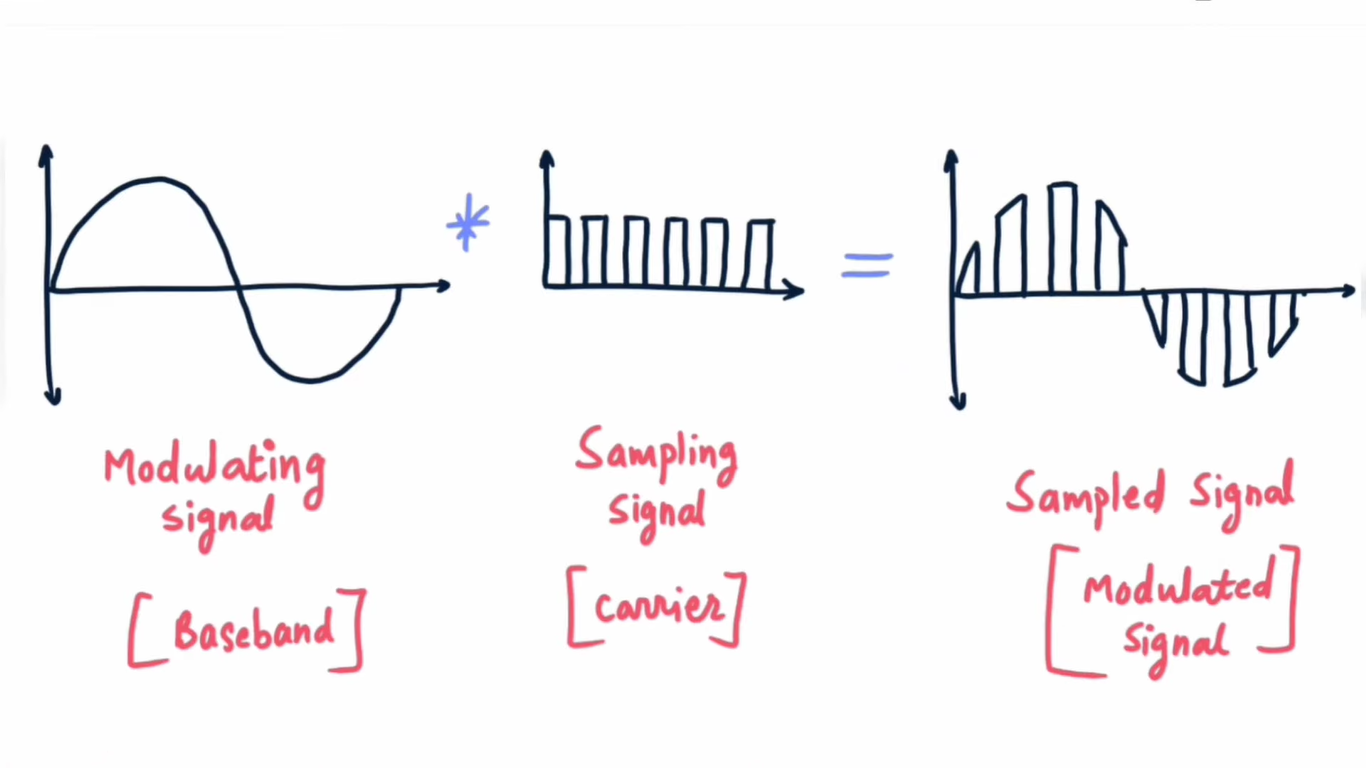 *
=
Modulating
signal
[Baseband]
Sampling
signal
[carrier]
Sampled Signal
[Modulated
signal]